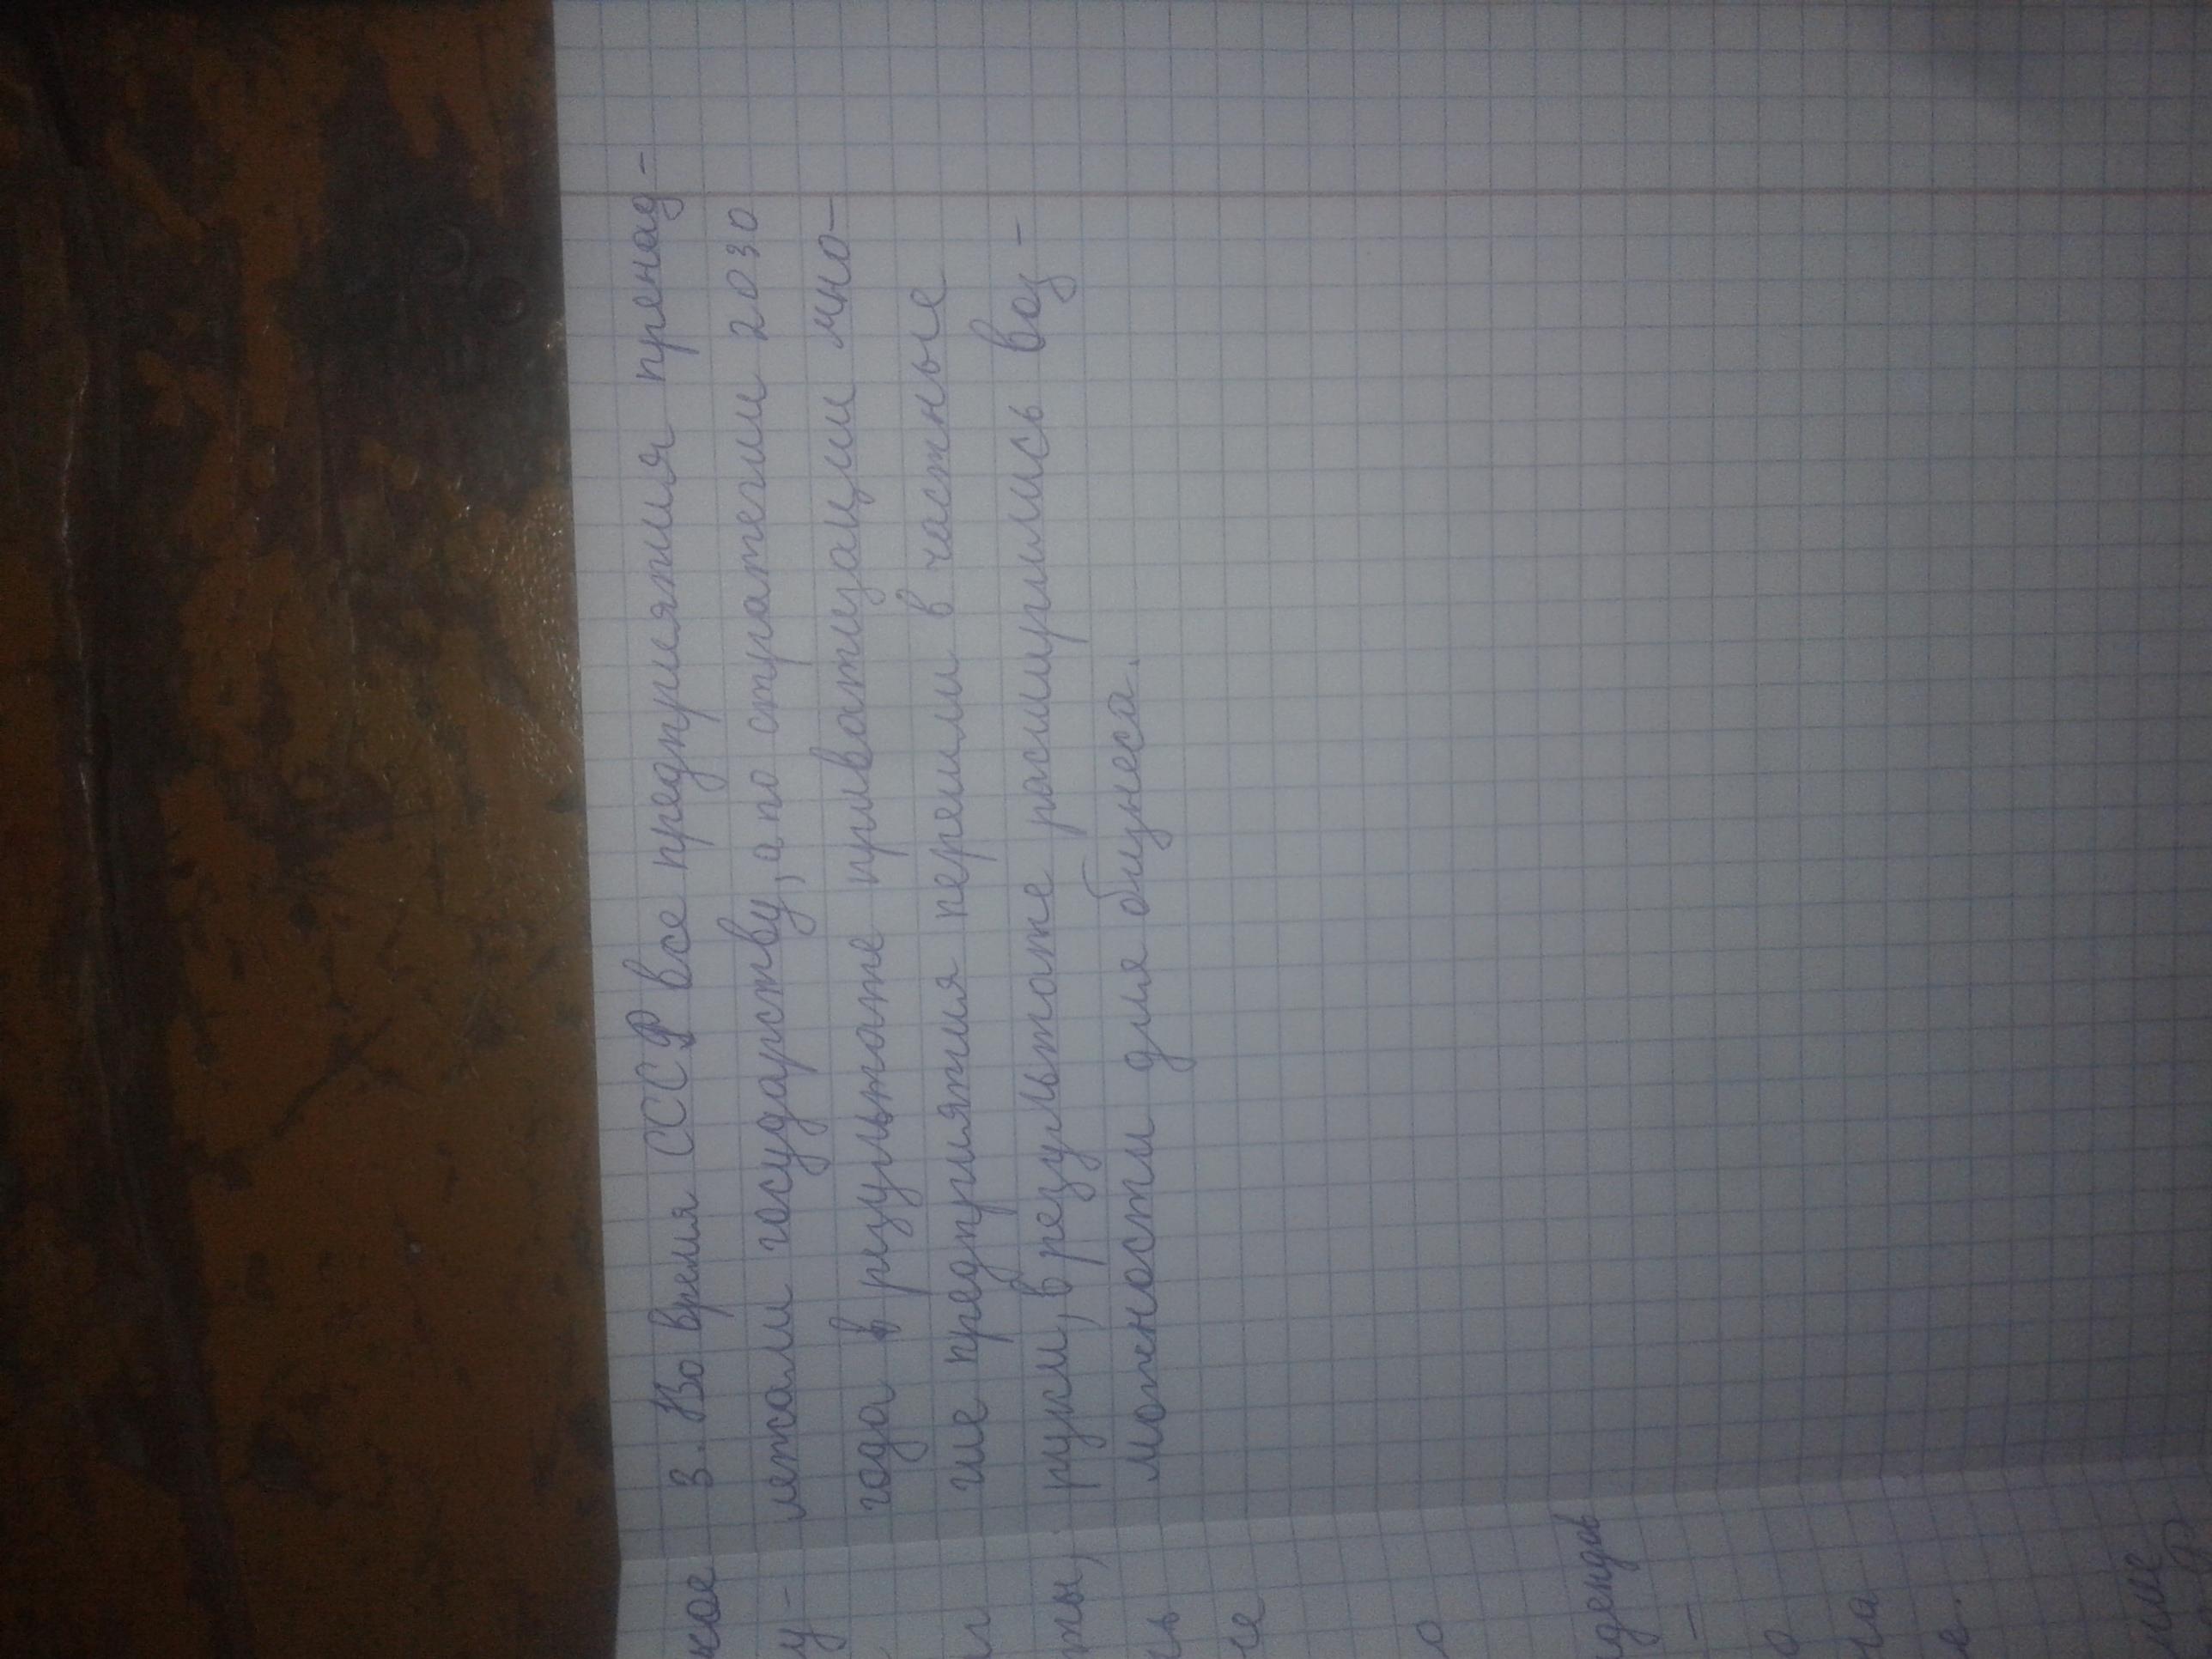 3. Во время СССР все предприятия пренад-
лежали государству, а по стратегии 2030
года в результате приватизации мно-
гие предприятия перешли в частные
руки, в результате расширились воз-
можности для бизнеса.
кое
у-
ты,
сь
не
о
идендов
-
о
на
е.